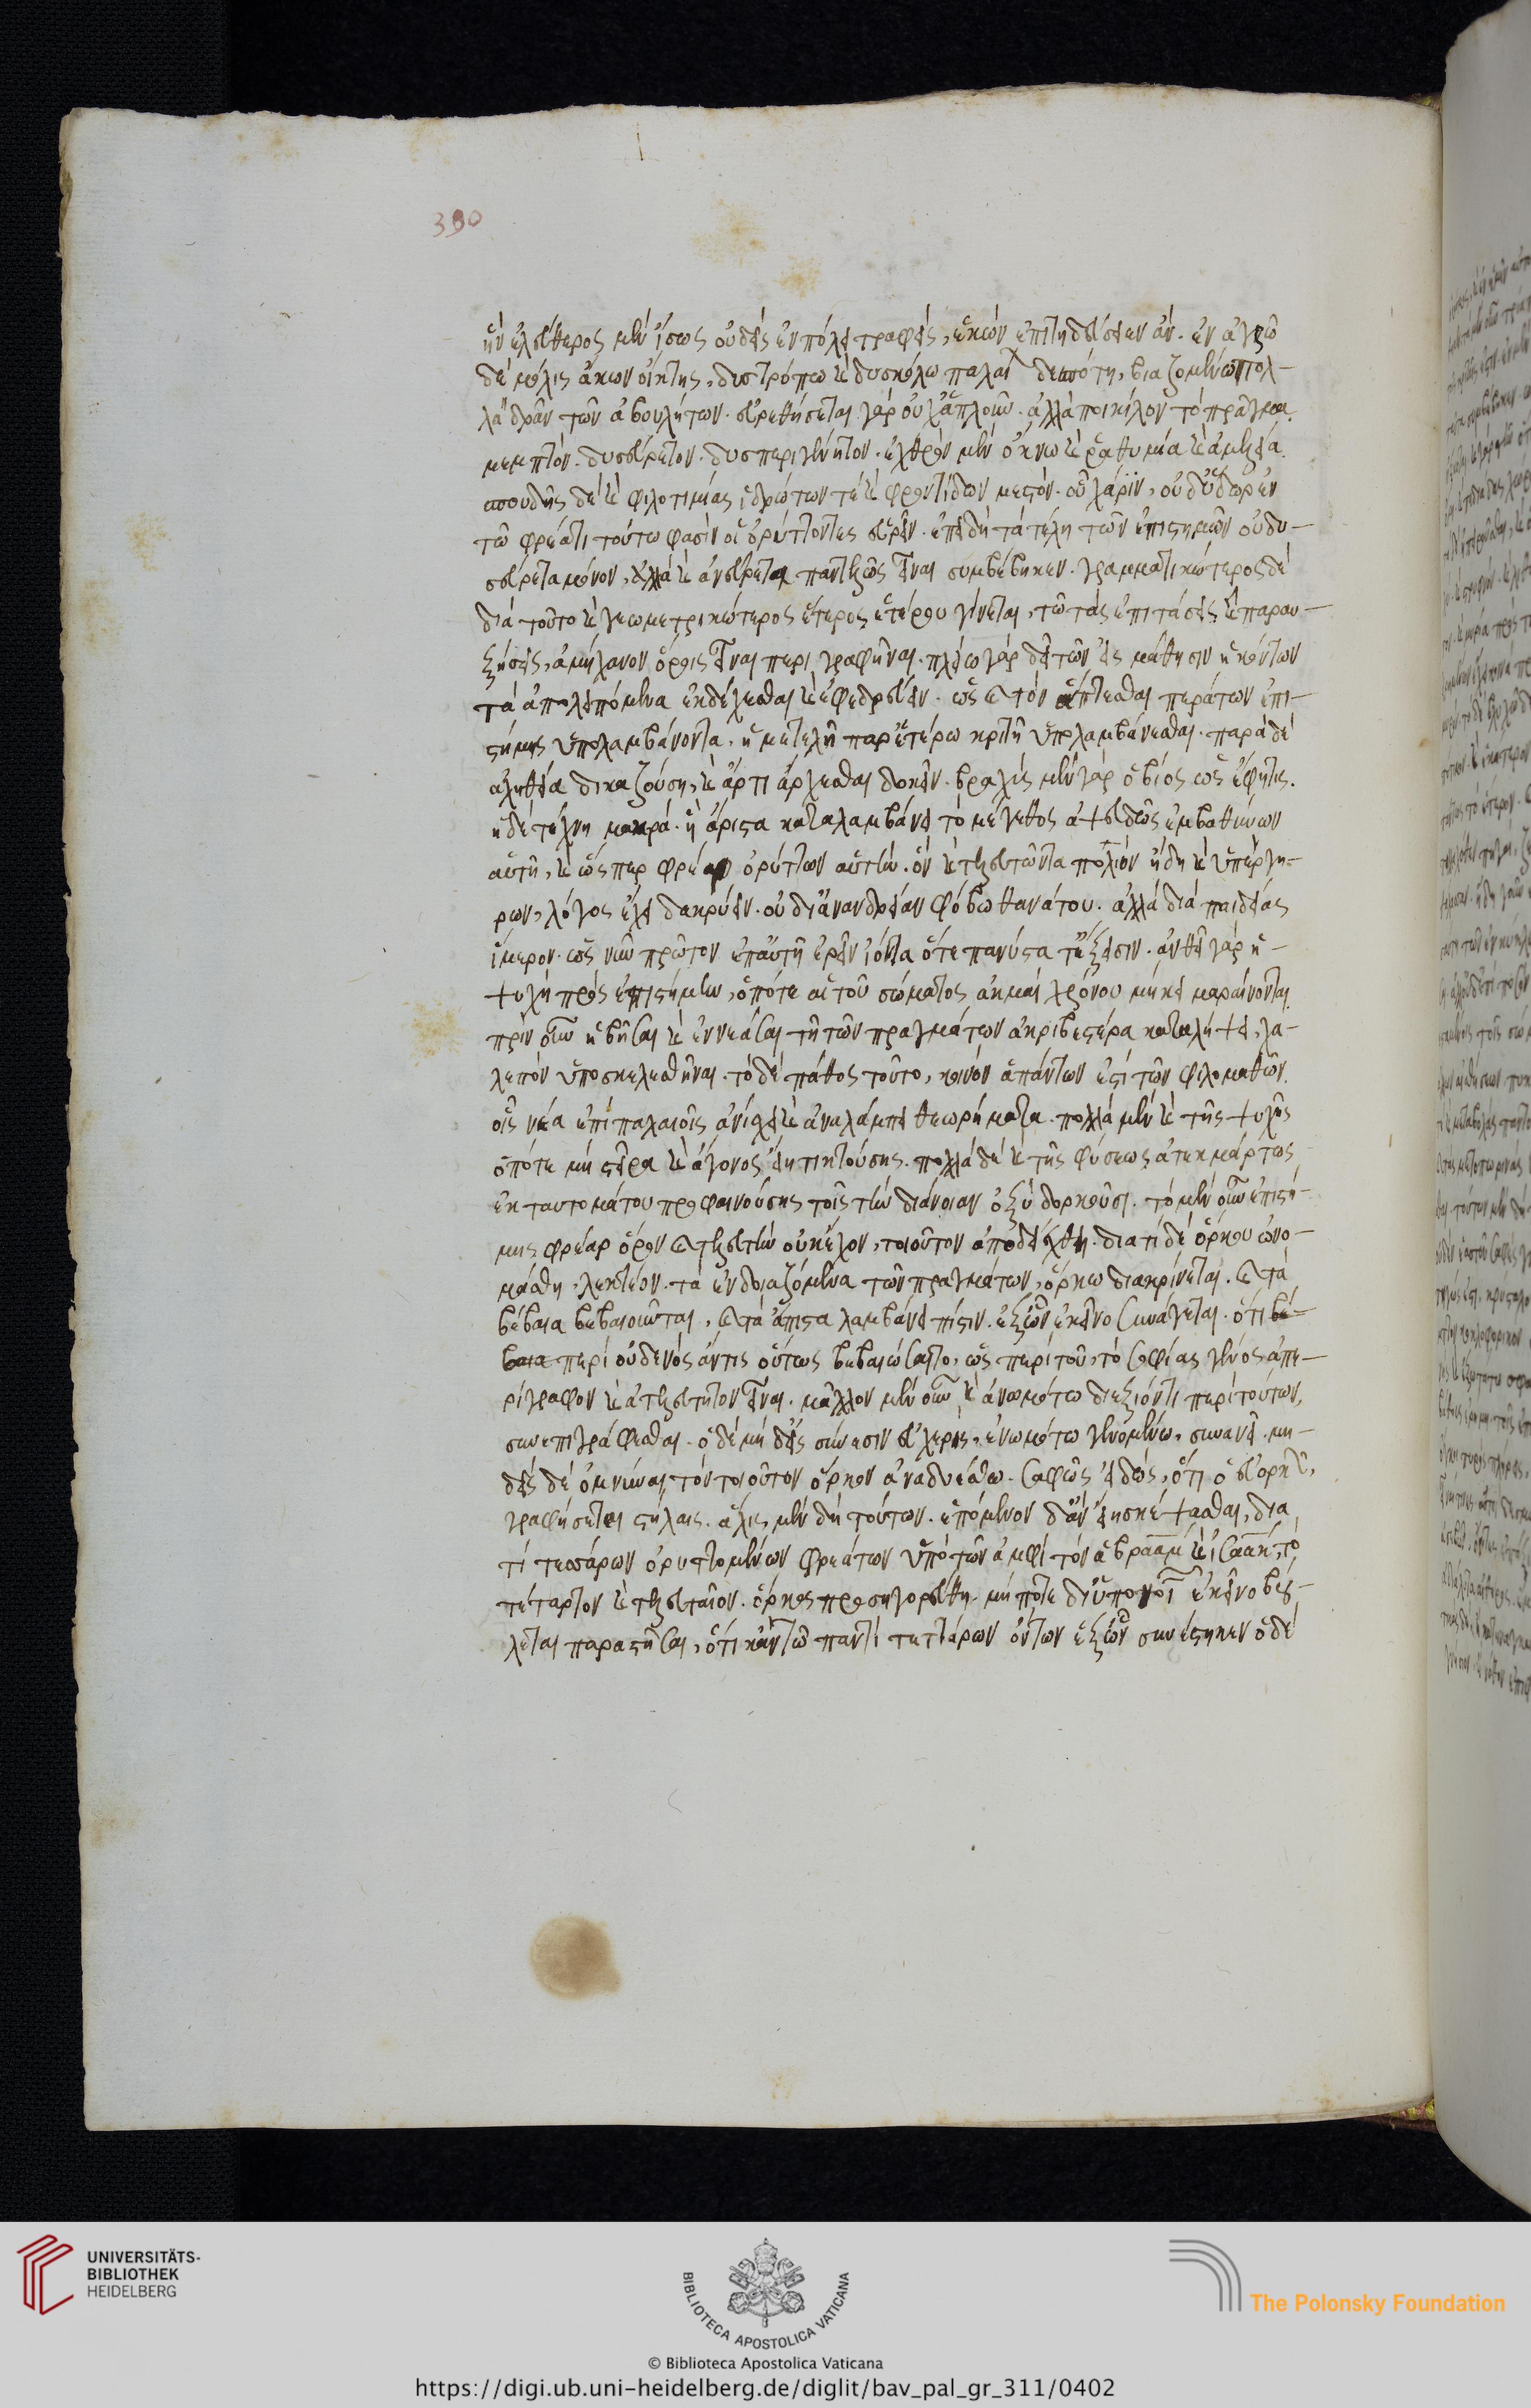 390
ἣν ἐλεύθερος μὲν ἴσως οὐδεὶς ἐν πόλει τραφεὶς, ἑκὼν ἐπιτηδεύσειεν ἄν. ἐν ἀγρῶ
δὲ μόλις ἄκων οἰκέτης, δυστρόπω καὶ δυσκόλω δεσπότη, βιαζομένω πολ-
λὰ δρᾶν τῶν ἀβουλήτων. εὑρεθήσεται γὰρ οὐχ ἁπλοῦν. ἀλλὰ ποικίλον τὸ πρᾶγμα.
μεμπτὸν. δυσεύρετον. δυσπεριγένητον. ἐχθρὸν μὲν ὄκνω καὶ ῥαθυμία καὶ ἀμελεία.
σπουδῆς δὲ καὶ φιλοτιμίας ἱδρώτων τὲ καὶ φροντίδων μεστόν. οὗ χάριν, οὐδ' ὕδωρ ἐν
τῶ φρέατι τούτω φασὶν οἱ ὀρύττοντες εὑρεῖν. ἐπειδὴ τὰ τέλη τῶν ἐπιστημῶν οὐ δυ-
σεύρετα μόνον, ἀλλὰ καὶ ἀνεύρετα παντελῶς εἶναι συμβέβηκεν. γραμματικώτερος δὲ
διὰ τοῦτο καὶ γεωμετρικώτερος ἕτερος ἑτέρου γίνεται, τῶ τὰς ἐπιτάσεις καὶ παραυ-
ξήσεις, ἀμήχανον ὅροις εἶναι περιγραφῆναι. πλείω γὰρ ἀεὶ τῶν εἰς μάθησιν ἡκόντων
τὰ ἀπολειπόμενα ἐκδέχεσθαι καὶ ἐφεδρεύειν. ὡς τὸν ἅπτεσθαι περάτων ἐπι-
στήμης ὑπολαμβάνοντα, ἡμιτελῆ παρ' ἑτέρω κριτῆ ὑπολαμβάνεσθαι. παρὰ δὲ
ἀληθεία δικαζούση, καὶ ἄρτι ἄρχεσθαι δοκεῖν. βραχὺς μὲν γὰρ ὁ βίος ὡς ἔφη τις.
ἡ δὲ τέχνη μακρά. ἧ ἄριστα καταλαμβάνει τὸ μέγεθος ἀψευδῶς ἐμβαθύνων
αὐτῆ, καὶ ὥσπερ φρέαρ ὀρύττων αὐτήν. ὃν καὶ τελευτῶντα πολιὸν ἤδη καὶ ὑπέργη-
ρων, λόγος ἔχει δακρύειν. οὐ δι' ἀνανδρείαν φόβω θανάτου. ἀλλὰ διὰ παιδείας
ἵμερον. ὡς νῦν πρῶτον ἐπ' αὐτὴ ἐρεῖν ἰόντα ὅτε πανύστατ' ἔξεισιν. ἀνθεῖ γὰρ ἡ
ψυχὴ πρὸς ἐπιστήμην, ὁπότε αἱ τοῦ σώματος ἀκμαὶ χρόνου μήκει μαραίνονται.
πρὶν οὖν ἡβῆσαι καὶ ἐννεάσαι τῆ τῶν πραγμάτων ἀκριβεστέρα καταλήψει, χα-
λεπὸν ὑποσκελισθῆναι. τὸ δὲ πάθος τοῦτο, κοινὸν ἁπάντων ἐστὶ τῶν φιλομαθῶν.
οἷς νέα ἐπὶ παλαιοῖς ἀνίσχει καὶ ἀναλάμπει θεωρήματα. πολλὰ μὲν καὶ τῆς ψυχῆς
ὁπότε μὴ στεῖρα καὶ ἄγονος εἴη τικτούσης. πολλὰ δὲ καὶ τῆς φύσεως ἀτεκμάρτως
ἐκ ταυτομάτου προφαινούσης τοῖς τὴν διάνοιαν ὀξὺ δορκοῦσι. τὸ μὲν οὖν ἐπιστή-
μης φρέαρ ὅρον τελευτὴν οὐκ ἔχον, τοιοῦτον ἀποδείχθη. διατί δὲ ὅρκου ὠνο-
μάσθη, λεκτέον. τὰ ἐνδοιαζόμενα τῶν πραγμάτων, ὅρκω διακρίνεται. τὰ
βέβαια βεβαιοῦται, τὰ ἄπιστα λαμβάνει πίστιν. ἐξ ὧν ἐκεῖνο συνάγεται. ὅτι βέ-
βαια περὶ οὐδενὸς ἄντις οὕτως βεβαιώσαιτο, ὡς περὶ τοῦ, τὸ σοφίας γένος ἀπε-
ρίγραφον καὶ ἀτελεύτητον εἶναι. μᾶλλον μὲν οὖν καὶ ἀνωμότω διεξιόντι περὶ τούτων,
συνεπιγράφεσθαι. ὁ δὲ μὴ δ' εἰς σύνεσιν εὐχερὴς, ἐνωμότω γενομένω, συναινεῖ. μη-
δεὶς δὲ ὀμνύναι τὸν τοιοῦτον ὅρκον ἀναδυέσθω. σαφῶς εἰδὼς, ὅτι ὁ εὐορκῶ,
γραφήσεται στήλαις. ἅλις μὲν δὴ τούτων. ἑπόμενον δ' ἂν εἴη σκέψασθαι, δια
τί τεσσάρων ὀρυττομένων φρεάτων ὑπὸ τῶν ἀμφὶ τὸν ἀβραὰμ καὶ ἰσαὰκ, τὸ
τέταρτον καὶ τελευταῖον. ὅρκος προσηγορεύθη. μή ποτε δι' ὑπονοι ἐκεῖνο βού-
λεται παραστῆσαι, ὅτι κἂν τῶ παντὶ τεττάρων ὄντων ἐξ ὧν συνέστηκεν ὅδε
UNIVERSITÄTS-
BIBLIOTHEK
HEIDELBERG
BIBLIOTECA APOSTOLICA VATICANA
The Polonsky Foundation
© Biblioteca Apostolica Vaticana
https://digi.ub.uni-heidelberg.de/diglit/bav_pal_gr_311/0402